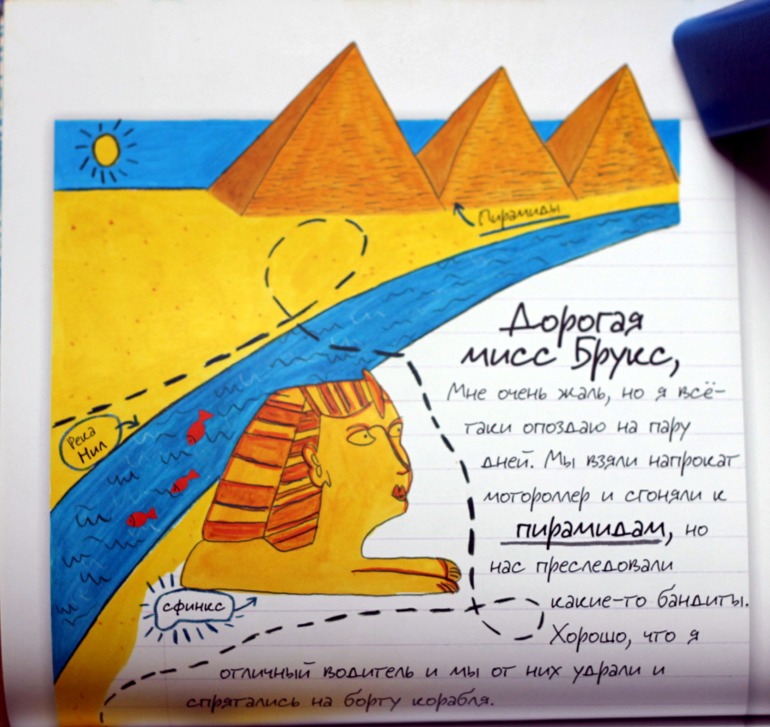 Пирамиды
Дорогая
мисс Брукс,
Мне очень жаль, но я всё-
таки опоздаю на пару
дней. Мы взяли напрокат
мотороллер и сгоняли к
пирамидам, но
нас преследовали
какие-то бандиты.
Хорошо, что я
отличный водитель и мы от них удрали и
спрятались на борту корабля.
Река
Нил
сфинкс